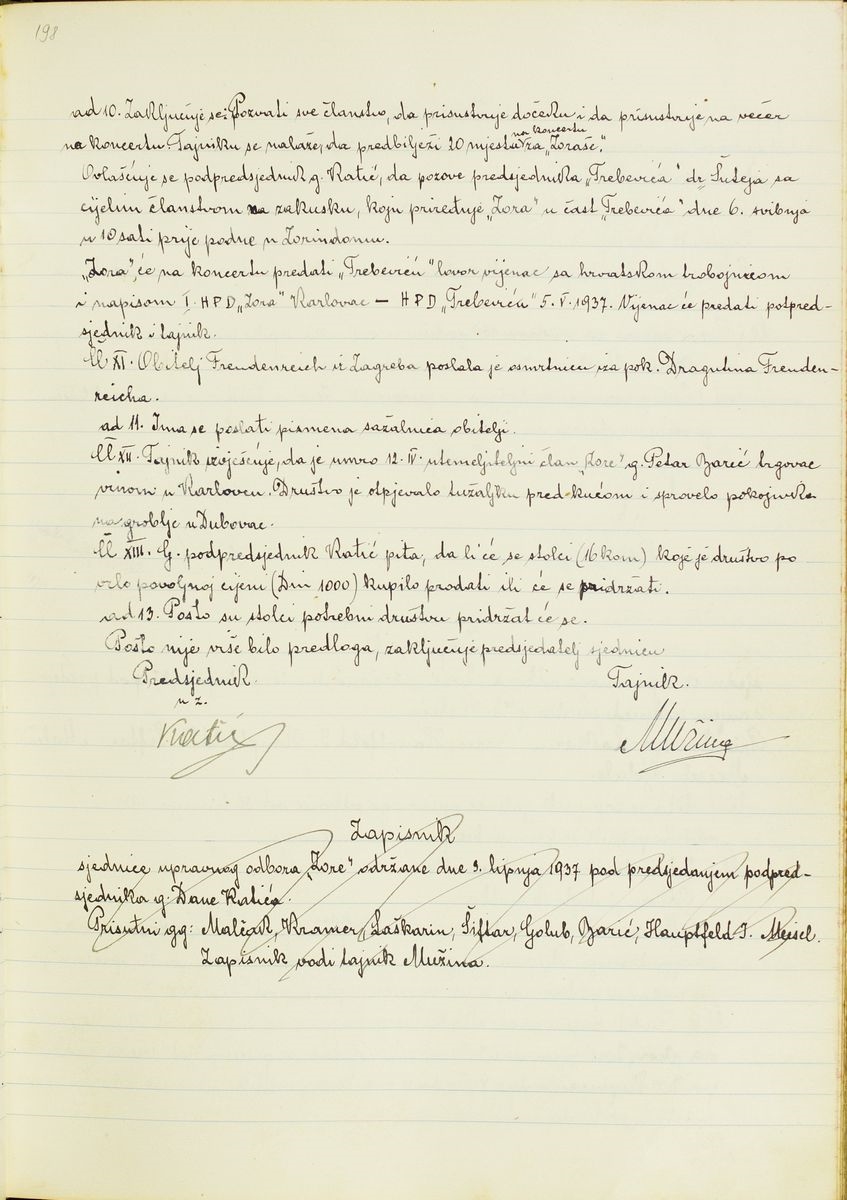 198
ad 10. Zaključuje se: Pozvati sve članstvo, da prisustvuje dočeku i da prisustvuje na večer
na koncertu. Tajniku se nalaže, da predbilježi 20 mjesta na koncertu za „Zoraše".
Ovlašćuje se podpredsjednik g. Katić, da pozove predsjednika „Trebevića" dr Šuteja sa
cijelim članstvom na zakusku, koju priređuje „Zora" u čast „Trebevića" dne 6. svibnja
u 10 sati prije podne u Zorindomu.
„Zora", će na koncertu predati „Trebeviću" lovor vijenac sa hrvatskom trobojnicom
i napisom I. HPD „Zora" Karlovac – HPD „Trebevića" 5. V. 1937. Vijenac će predati potpred-
sjednik i tajnik.
Č XI. Obitelj Freudenreich iz Zagreba poslala je osmrtnicu iza pok. Dragutina Freuden-
reicha.
ad 11. Ima se poslati pismena sažalnica obitelji.
Č XII. Tajnik izvješćuje, da je umro 12. IV. utemeljiteljni član „Zore" g. Petar Barić trgovac
vinom u Karlovcu. Društvo je otpjevalo tužaljku pred kućom i sprovelo pokojnika
na groblje u Dubovac.
Č XIII. G. podpredsjednik Katić pita, da li će se stolci (16 kom) koje je društvo po
vrlo povoljnoj cijeni (Din 1000) kupilo prodati ili će se pridržati.
ad 13. Pošto su stolci potrebni društvu pridržat će se.
Pošto nije više bilo predloga, zaključuje predsjedatelj sjednicu
Predsjednik. Tajnik.
u z.
Katić Mužina
Zapisnik
sjednice upravnog odbora „Zore" održane dne 9. lipnja 1937 pod predsjedanjem podpred-
sjednika g. Dane Katića.
Prisutni gg: Malčak, Kramer, Laškarin, Šiftar, Golub, Barić, Hauptfeld I. Meisel.
Zapisnik vodi tajnik Mužina.